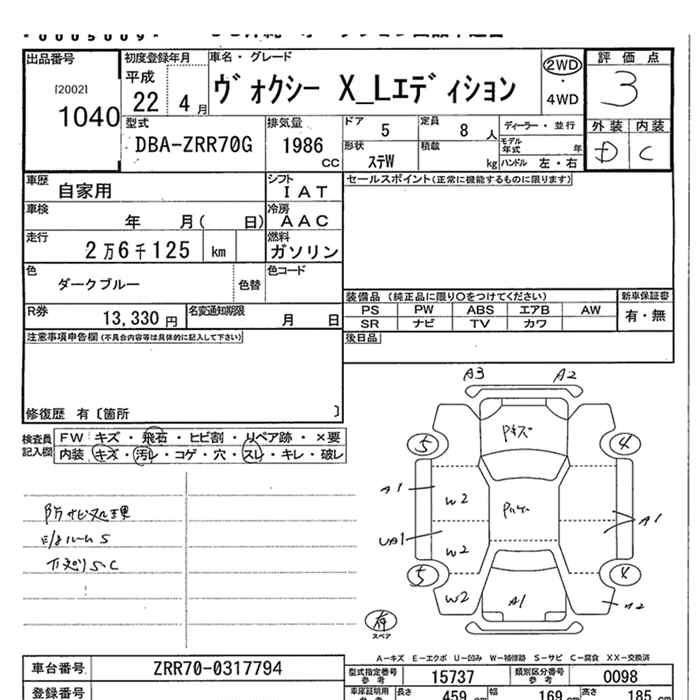 出品番号
[2002]
1040
初度登録年月
平成
22 4 月
車名・グレード
ヴォクシー X_Lエディション
2WD
・
4WD
評価点
3
外装 内装
D C
型式
DBA-ZRR70G
排気量
1986
CC
ドア
5
定員
8 人
ディーラー・並行
形状
ステW
積載
kg
モデル年式
年
ハンドル 左・右
車歴
自家用
シフト
IAT
セールスポイント(正常に機能するものに限ります)
車検
年 月( 日)
冷房
AAC
走行
2万6千125 km
燃料
ガソリン
色
ダークブルー
色替
色コード
装備品 (純正品に限り○をつけてください)
新車保証書
PS PW ABS エアB AW
有・無
SR ナビ TV カワ
R券
13,330 円
名変通知期限
月 日
後日品
注意事項申告欄(不具合内容等は具体的に記入して下さい)
修復歴 有〔箇所 〕
検査員記入欄
FW キズ・飛石・ヒビ割・リペア跡・×要
内装 キズ・汚レ・コゲ・穴・スレ・キレ・破レ
A3 A2
5 4
Pキズ
A1
W2
A1
UA1
W2
5 4
W2
A1
スペア
A-キズ E-エクボ U-凹み W-補修跡 S-サビ C-腐食 XX-交換済
車台番号
ZRR70-0317794
型式指定番号
参考
15737
類別区分番号
参考
0098
登録番号
車庫証明用
長さ
459 cm
幅
169 cm
高さ
185 cm